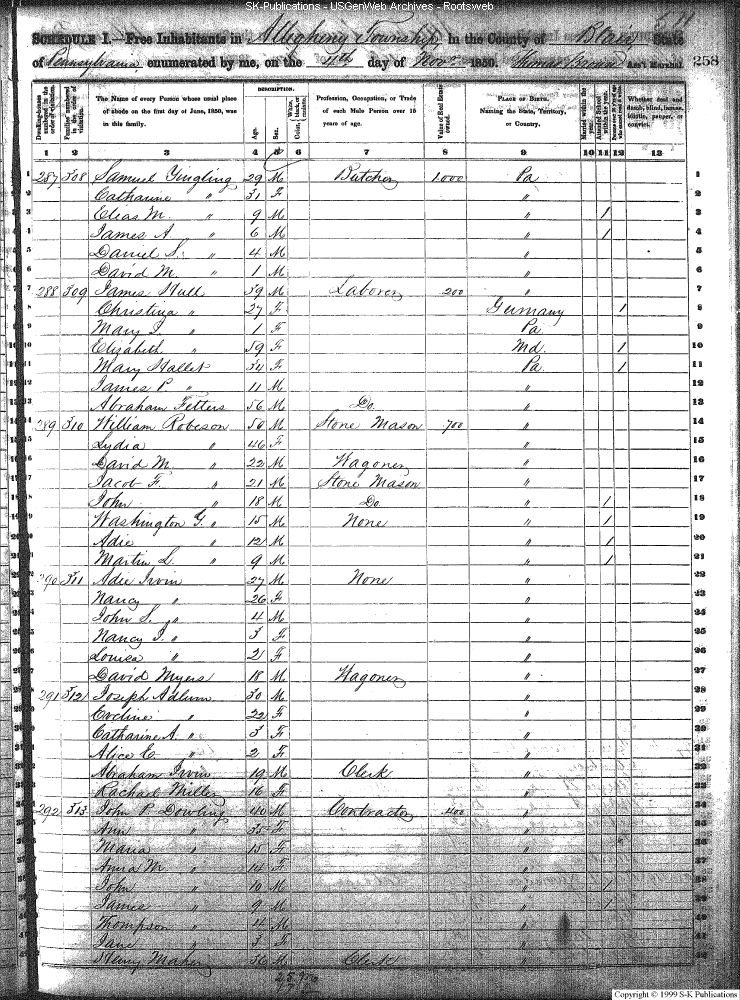 SK-Publications - USGenWeb Archives - Rootsweb
SCHEDULE I.—Free Inhabitants in Allegheny Township in the County of Blair State
of Pennsylvania enumerated by me, on the 4th day of Nov. 1850. Thomas Brown Ass't Marshal. 258
Dwelling-houses numbered in the order of visitation. Families numbered in the order of visitation. The Name of every Person whose usual place of abode on the first day of June, 1850, was in this family. DESCRIPTION. Age. Sex. White, black, or mulatto. Color, Profession, Occupation, or Trade of each Male Person over 15 years of age. Value of Real Estate owned. PLACE OF BIRTH. Naming the State, Territory, or Country. Married within the year. Attended School within the year. Whether deaf and dumb, blind, insane, idiotic, pauper, or convict.
1 2 3 4 5 6 7 8 9 10 11 12 13
1 287 308 Samuel Yingling 29 M Butcher 1.000 Pa 1
2 Catharine " 31 F " 2
3 Elias M. " 9 M " / 3
4 James A " 6 M " / 4
5 Daniel S. " 4 M " 5
6 David M. " 1 M " 6
7 288 309 James Hull 39 M Laborer 200 " 7
8 Christina " 27 F Germany / 8
9 Mary J. " 1 F Pa 9
10 Elizabeth " 59 F Md. / 10
11 Mary Hallet 34 F Pa / 11
12 James P. " 11 M " 12
13 Abraham Fetters 56 M Do. " 13
14 289 310 William Robeson 50 M Stone Mason 700 " 14
15 Lydia " 46 F " 15
16 David M. " 22 M Wagoner " 16
17 Jacob F. " 21 M Stone Mason " 17
18 John " 18 M Do " / 18
19 Washington G. " 15 M None " / 19
20 Adie " 12 M " / 20
21 Martin L. " 9 M " / 21
22 290 311 Adie Irvin 27 M None " 22
23 Nancy " 26 F " 23
24 John S. " 4 M " 24
25 Nancy J. " 3 F " 25
26 Louisa " 2 F " 26
27 David Myers 18 M Wagoner " 27
28 291 312 Joseph Adlum 30 M " 28
29 Eveline " 22 F " 29
30 Catharine A. " 3 F " 30
31 Alice C. " 2 F " 31
32 Abraham Irvin 19 M Clerk " 32
33 Rachael Miller 16 F " 33
34 292 313 John P. Dowling 40 M Contractor 400 " 34
35 Ann " 35 F " 35
36 Maria " 15 F " 36
37 Anna M. " 14 F " 37
38 John " 10 M " / 38
39 James " 9 M " / 39
40 Thompson " 4 M " 40
41 Jane " 3 F " 41
42 Maher 36 M Clerk " 42
Copyright © 1999 S-K Publications